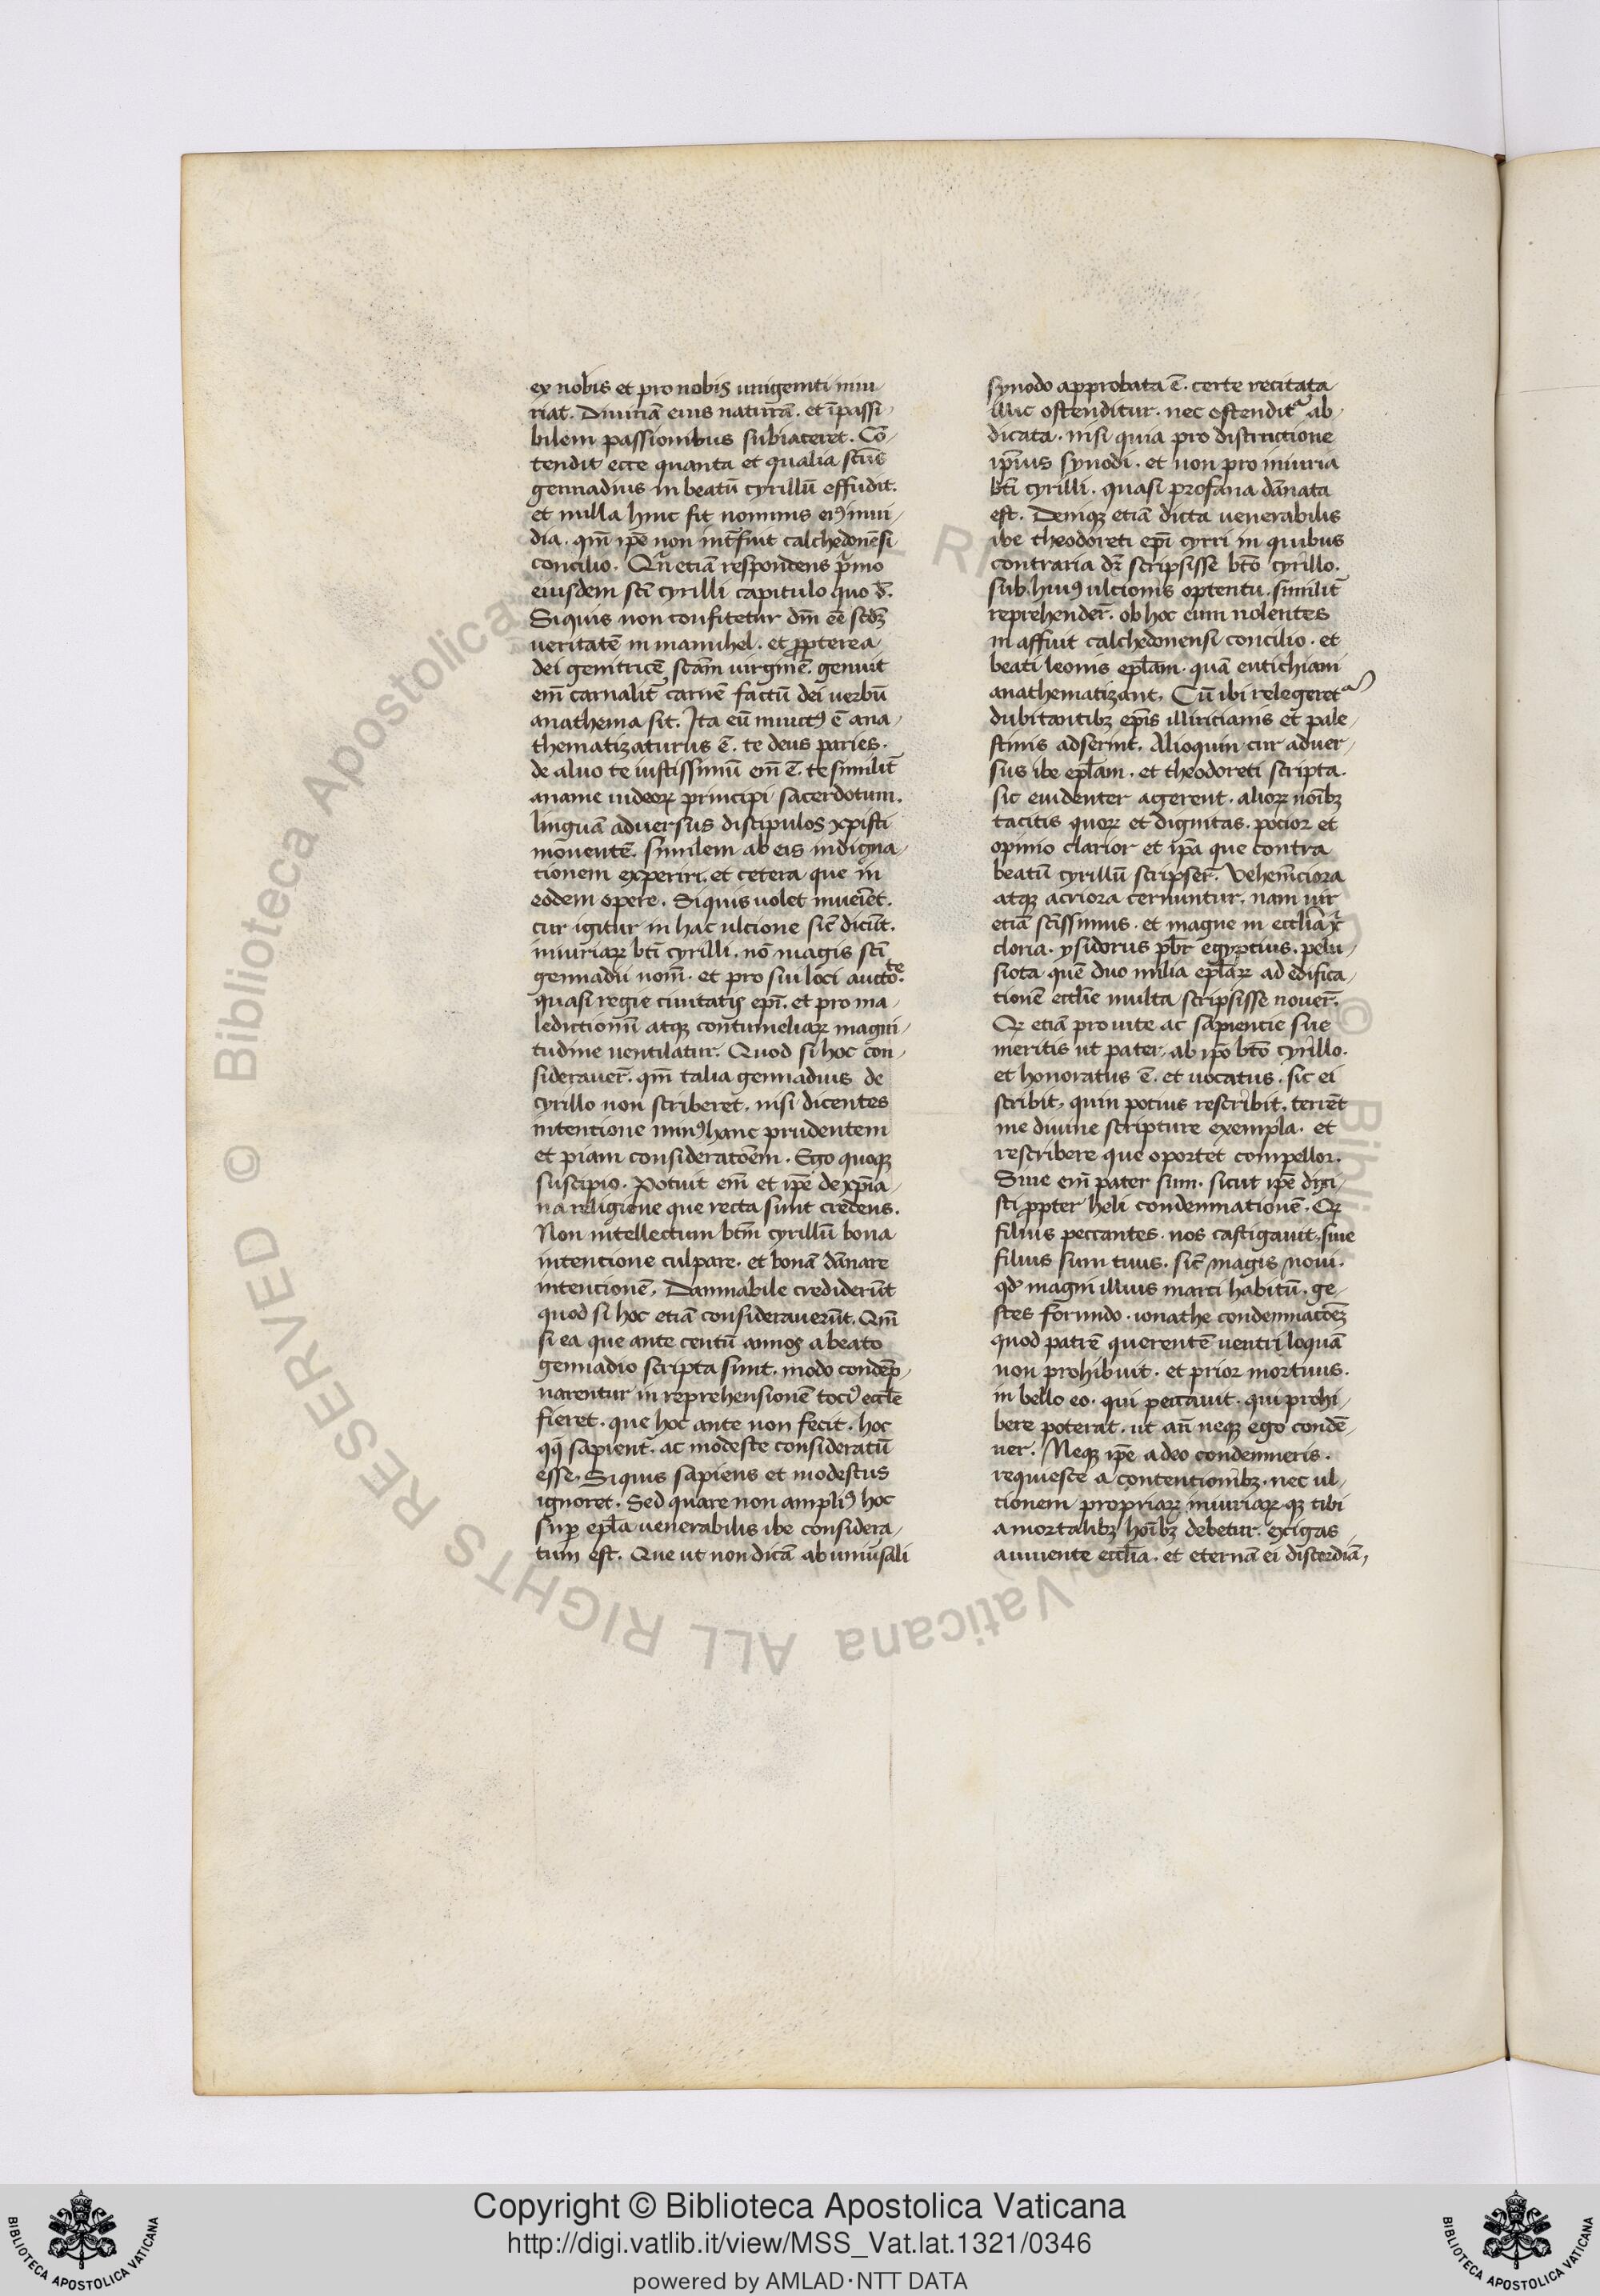 ex nobis et pro nobis unigeniti iniu
riat. Diuinā eius naturā. et īpassi
bilem passionibus subiaceret. Cō
tendit ecce quanta et qualia scūs
gennadius in beatū cyrillū effudit.
et nulla hinc fit nominis eiꝰ inui
dia. qm̄ ip̄e non int̄fuit calchedonēsi
concilio. etiā respondens pͥmo
eiusdem sc̄i cyrilli capitulo quo d̄r.
Siquis non confitetur dm̄ eē scd̄ꝫ
veritatē in manuhel. et ꝓpterea
dei genitricē scām uirginē. genuit
em̄ carnalit̄ carnē factū dei uerbū
anathema sit. Ita eū ē ana
thematizaturus ē. te deus paries.
de aluo te iustissimū em̄ ē. te similit̄
aname iudeoꝝ principi sacerdotum.
linguā aduersus discipulos xpisti
mouentē. similem ab eis indigna
tionem experiri. et cetera que in
eodem opere. Siquis uolet inueīet.
cur igitur in hac ulcione sic̄ dicūt.
iniuriaꝝ bt̄i cyrilli. nō magis sc̄i
gennadii nom̄. et pro sui loci auctoᵗᵉ.
quasi regie ciuitatis ep̄i. et pro ma
ledictionū atqꝫ contumeliaꝝ magni
tudine uentilatur. Quod si hoc con
siderauer̄. qm̄ talia gennadius de
cyrillo non scriberet. nisi dicentes
intencione hanc prudentem
et piam consideratōem. Ego quoqꝫ
suscipio. Potuit em̄ et ip̄e de xp̄ia
na religione que recta sunt credens.
Non intellectum btm̄ cyrillū bona
intentione culpare. et bonā dānare
intencionē. Damnabile crediderūt
quod si hoc etiā considerauerūt. Qm̄
si ea que ante centū annos a beato
gennadio scripta sunt. modo condēp
narentur in reprehensionē tociꝰ eccl̄e
fieret. que hoc ante non fecit. hoc
qq̄ sapient̄. ac modeste consideratū
esse. Siquis sapiens et modestus
ignoret. Sed quare non ampliꝰ hoc
suꝑ epl̄a uenerabilis ibe considera
tum est. Que ut non dicā ab uniūsali
synodo approbata ē. certe recitata
illic ostenditur. nec ostendit᷑ ab
dicata. nisi quia pro districtione
ip̄ius synodi. et non pro iniuria
bt̄i cyrilli. quasi profana dānata
est. Deniqꝫ etiā dicta uenerabilis
ibe theodoreti ep̄i cyrri in quibus
contraria dr̄ scripsisse bt̄o cyrillo.
sub huiꝰ ulcionis optentu. similit̄
reprehender̄. ob hoc eum nolentes
in affuit calchedonensi concilio. et
beati leonis epl̄am. quā eutichiani
anathematizant. Cū ibi relegeret᷑
dubitantibꝫ ep̄is illiricianis et pale
stinis adserint. Alioquin cur aduer
sus ibe epl̄am. et theodoreti scripta.
sic euidenter agerent. alioꝝ noībꝫ
tacitis quoꝝ et dignitas. pocior et
opinio clarior et ip̄a que contra
beatū cyrillū scripser̄. Vehem̄ciora
atqꝫ acriora cernuntur. nam uir
etiā sc̄issimus. et magne in eccl̄ia
cloria. ysidorus pb̄r egyptius. pelu
siota quē duo milia epl̄aꝝ ad edifica
tionē eccl̄ie multa scripsisse nouer̄.
Qꝛ etiā pro uite ac sapiencie sue
meritis ut pater. ab ip̄o bt̄o cyrillo.
et honoratus ē. et uocatus. sic ei
scribit. quin potius rescribit. terrēt
me diuine scripture exempla. et
rescribere que oportet compellor.
Siue em̄ pater sum. sicut ip̄e dixi
sti ꝓpter heli condemnationē. Qꝛ
filius peccantes. nos castigauit. siue
filius sum tuus. sic̄ magis noui.
qd̄ magni illius marci habitū. ge
stes formido. ionathe condemnatōeꝫ
quod patrē querentē uentri loquā
non prohibuit. et prior mortuus.
in bello eo. qui peccauit. qui prohi
bere poterat. ut an̄ neqꝫ ego condē
ner. Neqꝫ ip̄e a deo condemneris.
requiesce a contentionibꝫ. nec ul
tionem propriaꝝ iniuriaꝝ qꝫ tibi
a mortalibꝫ hoībꝫ debetur. exigas
a uiuente eccl̄ia. et eternā ei discordiā,
Copyright © Biblioteca Apostolica Vaticana
http://digi.vatlib.it/view/MSS_Vat.lat.1321/0346
powered by AMLAD·NTT DATA